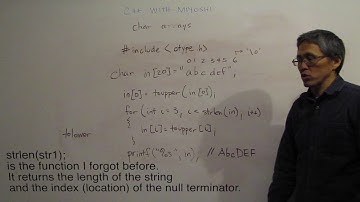 C++ WITH MPLOSHI
char arrays
#include <ctype.h>
0 1 2 3 4 5 6 → '\0'
char in[20]="abcdef";
in[0]=toupper(in[0]);
for (int i=3; i<strlen(in); i++)
{
in[i]=toupper[i];
}
tolower
printf("%s", in); // AbcDEF
strlen(str1);
is the function I forgot before.
It returns the length of the string
and the index (location) of the null terminator.